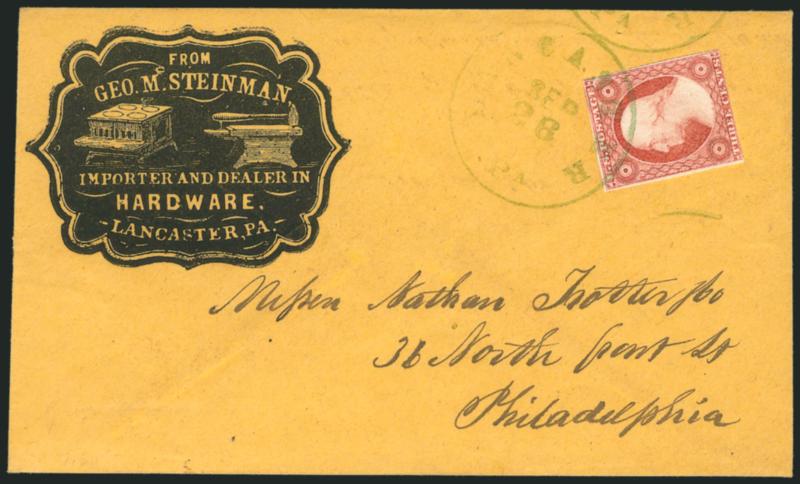 FROM
GEO. M. STEINMAN,
IMPORTER AND DEALER IN
HARDWARE,
LANCASTER, PA.
SEP
28
PA
Messrs Nathan Trotter & Co
36 North front St
Philadelphia